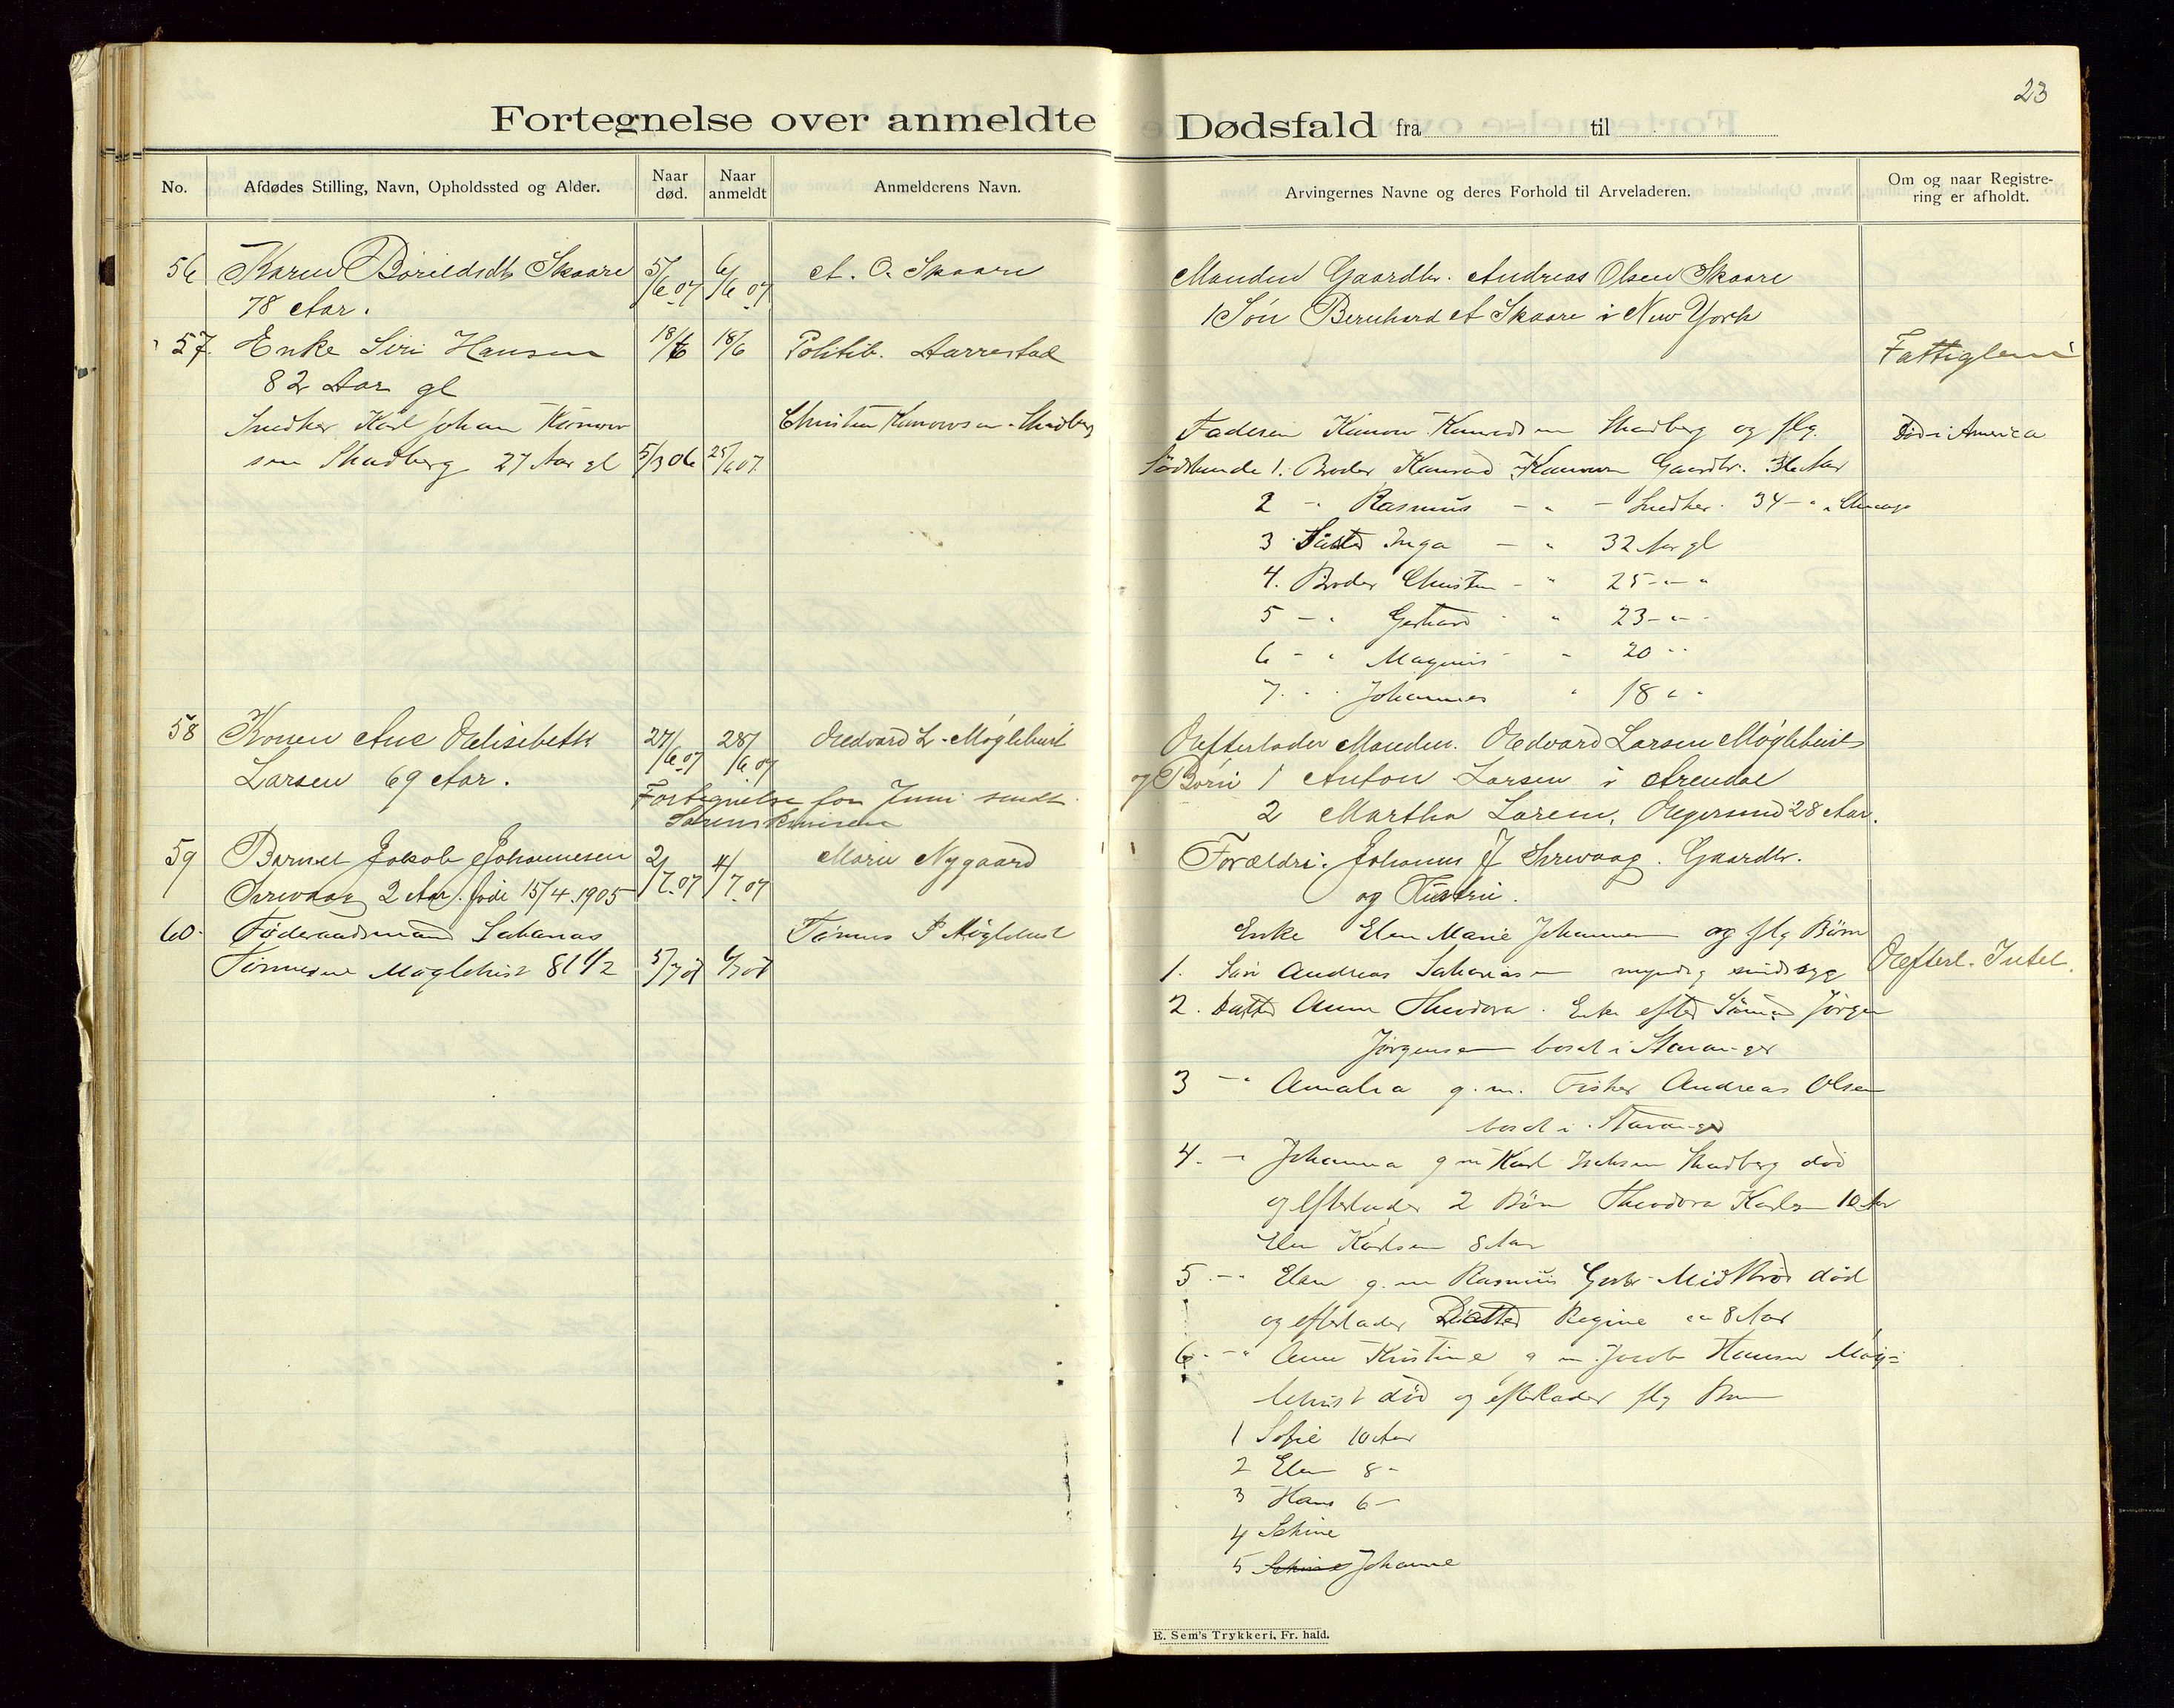 23
Fortegnelse over anmeldte Dødsfald fra til
No.
Afdødes Stilling, Navn, Opholdssted og Alder.
Naar død.
Naar anmeldt
Anmelderens Navn.
Arvingernes Navne og deres Forhold til Arveladeren.
Om og naar Registrering er afholdt.
56 Karen Børildsdtr Skaare 5/6 07 6/6 07 A. O. Skaare Manden Gaardbr. Andreas Olsen Skaare
78 Aar. 1 Søn Bernhard A Skaare i New York
57. Enke Siri Hansen 18/6 18/6 Politib. Aarrestad Fattiglem
82 Aar gl
Snedker Karl Johan Kunow Christen Kunowsen Skadberg Faderen Kunow Skadberg og flg. Død i America
sen Skadberg 27 Aar gl 5/3 06 25/6 07. Södskende 1. Broder Konrad Kunowsen Gaardbr. 36 Aar
2 - " Rasmus - " - Snedker. 34 - " i Chicago
3 Søster Inga - " 32 Aar gl
4. Broder Christen - " 25 - " - "
5 - " Gerhard " 23 - " -
6 - " Magnus - " 20 "
7. " Johannes " 18 " "
58 Konen Ane Elisebeth 27/6 07 28/6 07 Edvard L. Møglehust Efterlader Manden. Edvard Larsen Møglehust
Larsen 69 Aar. og Börn 1 Anton Larsen i Arendal
Fortegnelse for Juni sendt Sorenskriveren
2 Martha Larsen, Egersund 28 Aar.
59 Barnet Jakob Johannesen 2/7 07 4/7 07 Marie Nygaard Forældre. Johannes J Sirevaag. Gaardbr.
Sirevaag 2 Aar. født 15/4 1905 og Hustru.
60. Föderaadsmand Sakarias Tønnes S Møglehust Enke Elen Marie og flg Børn
Tønnesen Møglehust 81 1/2 5/7 07 6/7 07 1. Søn Andreas Sakariasen myndig sindssyg Efterl. Intet.
2. Datter Anne Theodora. Enke efter Sømand Jørgen
Jørgensen bosat i Stavanger
3 - " Amalia g. m. Fisker Andreas Olsen
bosat i Stavanger
4. - " Johanna g m Karl Skadberg død
og efterlader 2 Børn Theodora Karlsen 10 Aar
Elen Karlsen 8 Aar
5. - " Elen g. m Rasmus død
og efterlader Datter Regine 8 Aar
6. - " Anne Kristine g m Jacob Hansen Møg=
lehust død og efterlader flg Børn
1 Sofie 10 Aar
2 Elen 8 -
3 Hans 6 -
4 Sakine
5 Johanne
E. Sem's Trykkeri, Fr. hald.